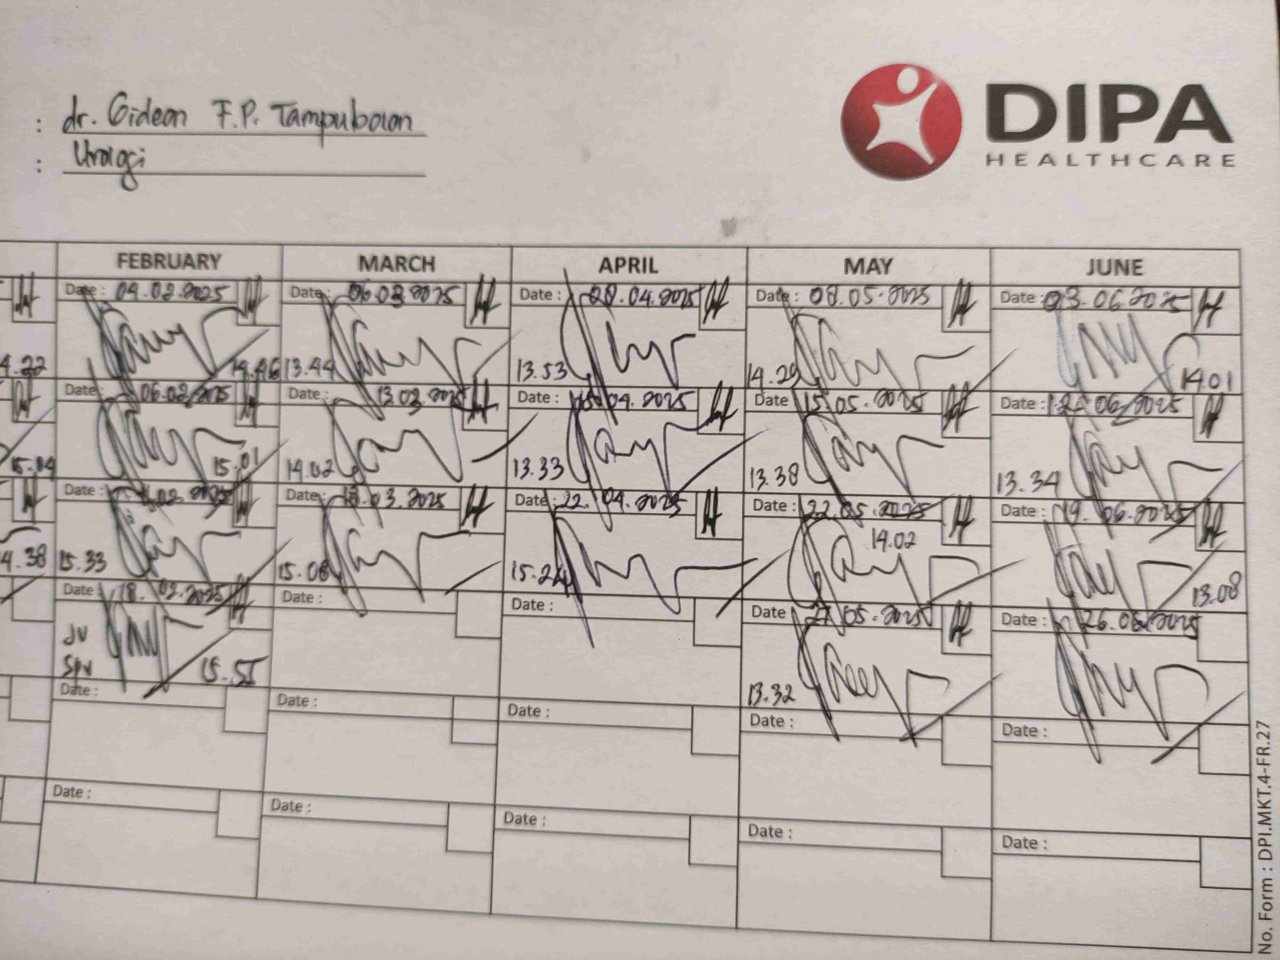 : dr. Gideon F.P. Tampubolon
: Urologi
DIPA
HEALTHCARE
FEBRUARY MARCH APRIL MAY JUNE
Date : 04.02.2025 Date : 06.03.2025 Date : 08.04.2025 Date : 08.05.2025 Date : 03.06.2025
4.22 14.46 13.44 13.53 14.29 14.01
Date : 06.02.2025 Date : 13.03.2025 Date : 15.04.2025 Date : 15.05.2025 Date : 12.06.2025
15.04 15.01 14.02 13.33 13.38 13.34
Date : .02.2025 Date : 18.03.2025 Date : 22.04.2025 Date : 22.05.2025 Date : 19.06.2025
14.02
4.38 15.33 15.08 15.24 13.08
Date : 18.02.2025 Date : Date : Date : 27.05.2025 Date : 26.06.2025
JV
Spv 15.55 13.32
Date : Date : Date : Date : Date :
Date : Date : Date : Date : Date :
No. Form : DPI.MKT.4-FR.27